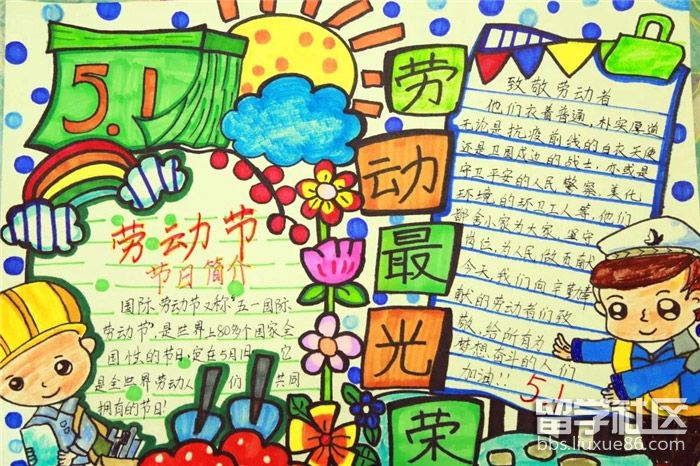 5.1
劳动节
节日简介
国际劳动节又称"五一国际
劳动节",是世界上80多个国家全
国性的节日,定在5月1日 它
是全世界劳动人们 共同
拥有的节日!
劳
动
最
光
荣
致敬劳动者
他们衣着普通,朴实厚道
无论是抗疫前线的白衣天使
还是卫国戍边的战士,亦或是
守卫平安的人民警察,美化
环境的环卫工人等,他们
都舍小家为大家,坚守
岗位,为人民做贡献
今天,我们向辛勤奉
献的劳动者们致
敬,给所有为
梦想奋斗的人们
加油!!
5.1
留学社区
bbs.liuxue86.com